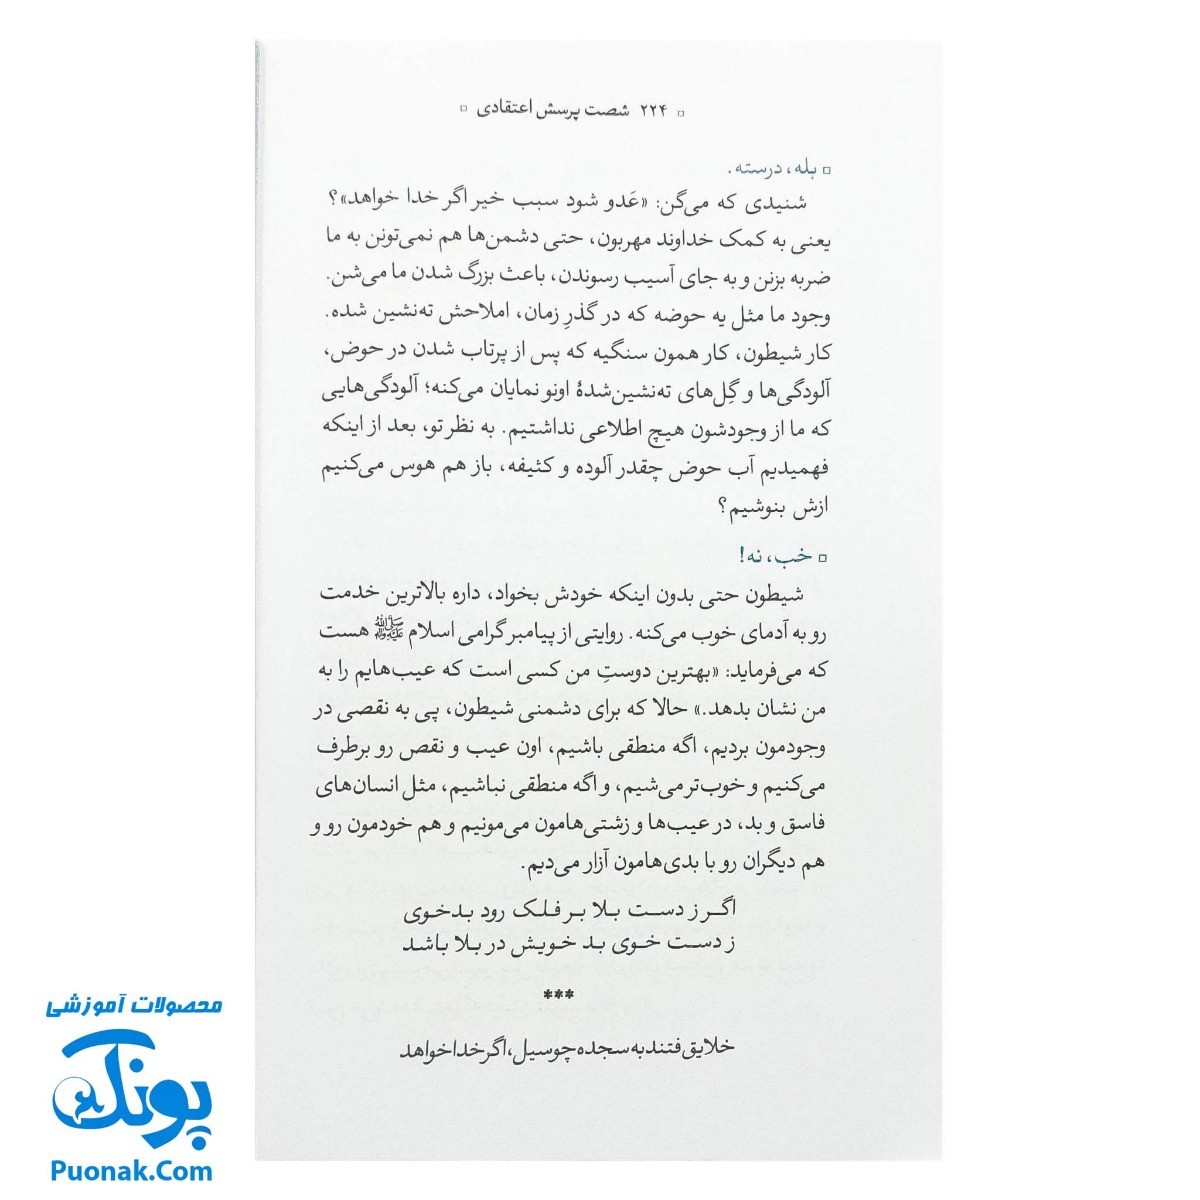 ▫ ۲۲۴ شصت پرسش اعتقادی ▫
▫ بله، درسته.
شنیدی که می‌گن: «عَدو شود سبب خیر اگر خدا خواهد»؟
یعنی به کمک خداوند مهربون، حتی دشمن‌ها هم نمی‌تونن به ما
ضربه بزنن و به جای آسیب رسوندن، باعث بزرگ شدن ما می‌شن.
وجود ما مثل یه حوضه که در گذرِ زمان، املاحش ته‌نشین شده.
کار شیطون، کار همون سنگیه که پس از پرتاب شدن در حوض،
آلودگی‌ها و گِل‌های ته‌نشین‌شدهٔ اونو نمایان می‌کنه؛ آلودگی‌هایی
که ما از وجودشون هیچ اطلاعی نداشتیم. به نظر تو، بعد از اینکه
فهمیدیم آب حوض چقدر آلوده و کثیفه، باز هم هوس می‌کنیم
ازش بنوشیم؟
▫ خب، نه!
شیطون حتی بدون اینکه خودش بخواد، داره بالاترین خدمت
رو به آدمای خوب می‌کنه. روایتی از پیامبر گرامی اسلام ﷺ هست
که می‌فرماید: «بهترین دوستِ من کسی است که عیب‌هایم را به
من نشان بدهد.» حالا که برای دشمنی شیطون، پی به نقصی در
وجودمون بردیم، اگه منطقی باشیم، اون عیب و نقص رو برطرف
می‌کنیم و خوب‌تر می‌شیم، و اگه منطقی نباشیم، مثل انسان‌های
فاسق و بد، در عیب‌ها و زشتی‌هامون می‌مونیم و هم خودمون رو و
هم دیگران رو با بدی‌هامون آزار می‌دیم.
اگر ز دست بلا بر فلک رود بدخوی
ز دست خوی بد خویش در بلا باشد
***
خلایق فتند به سجده چو سیل، اگر خدا خواهد
محصولات آموزشی
پونک
Puonak.Com